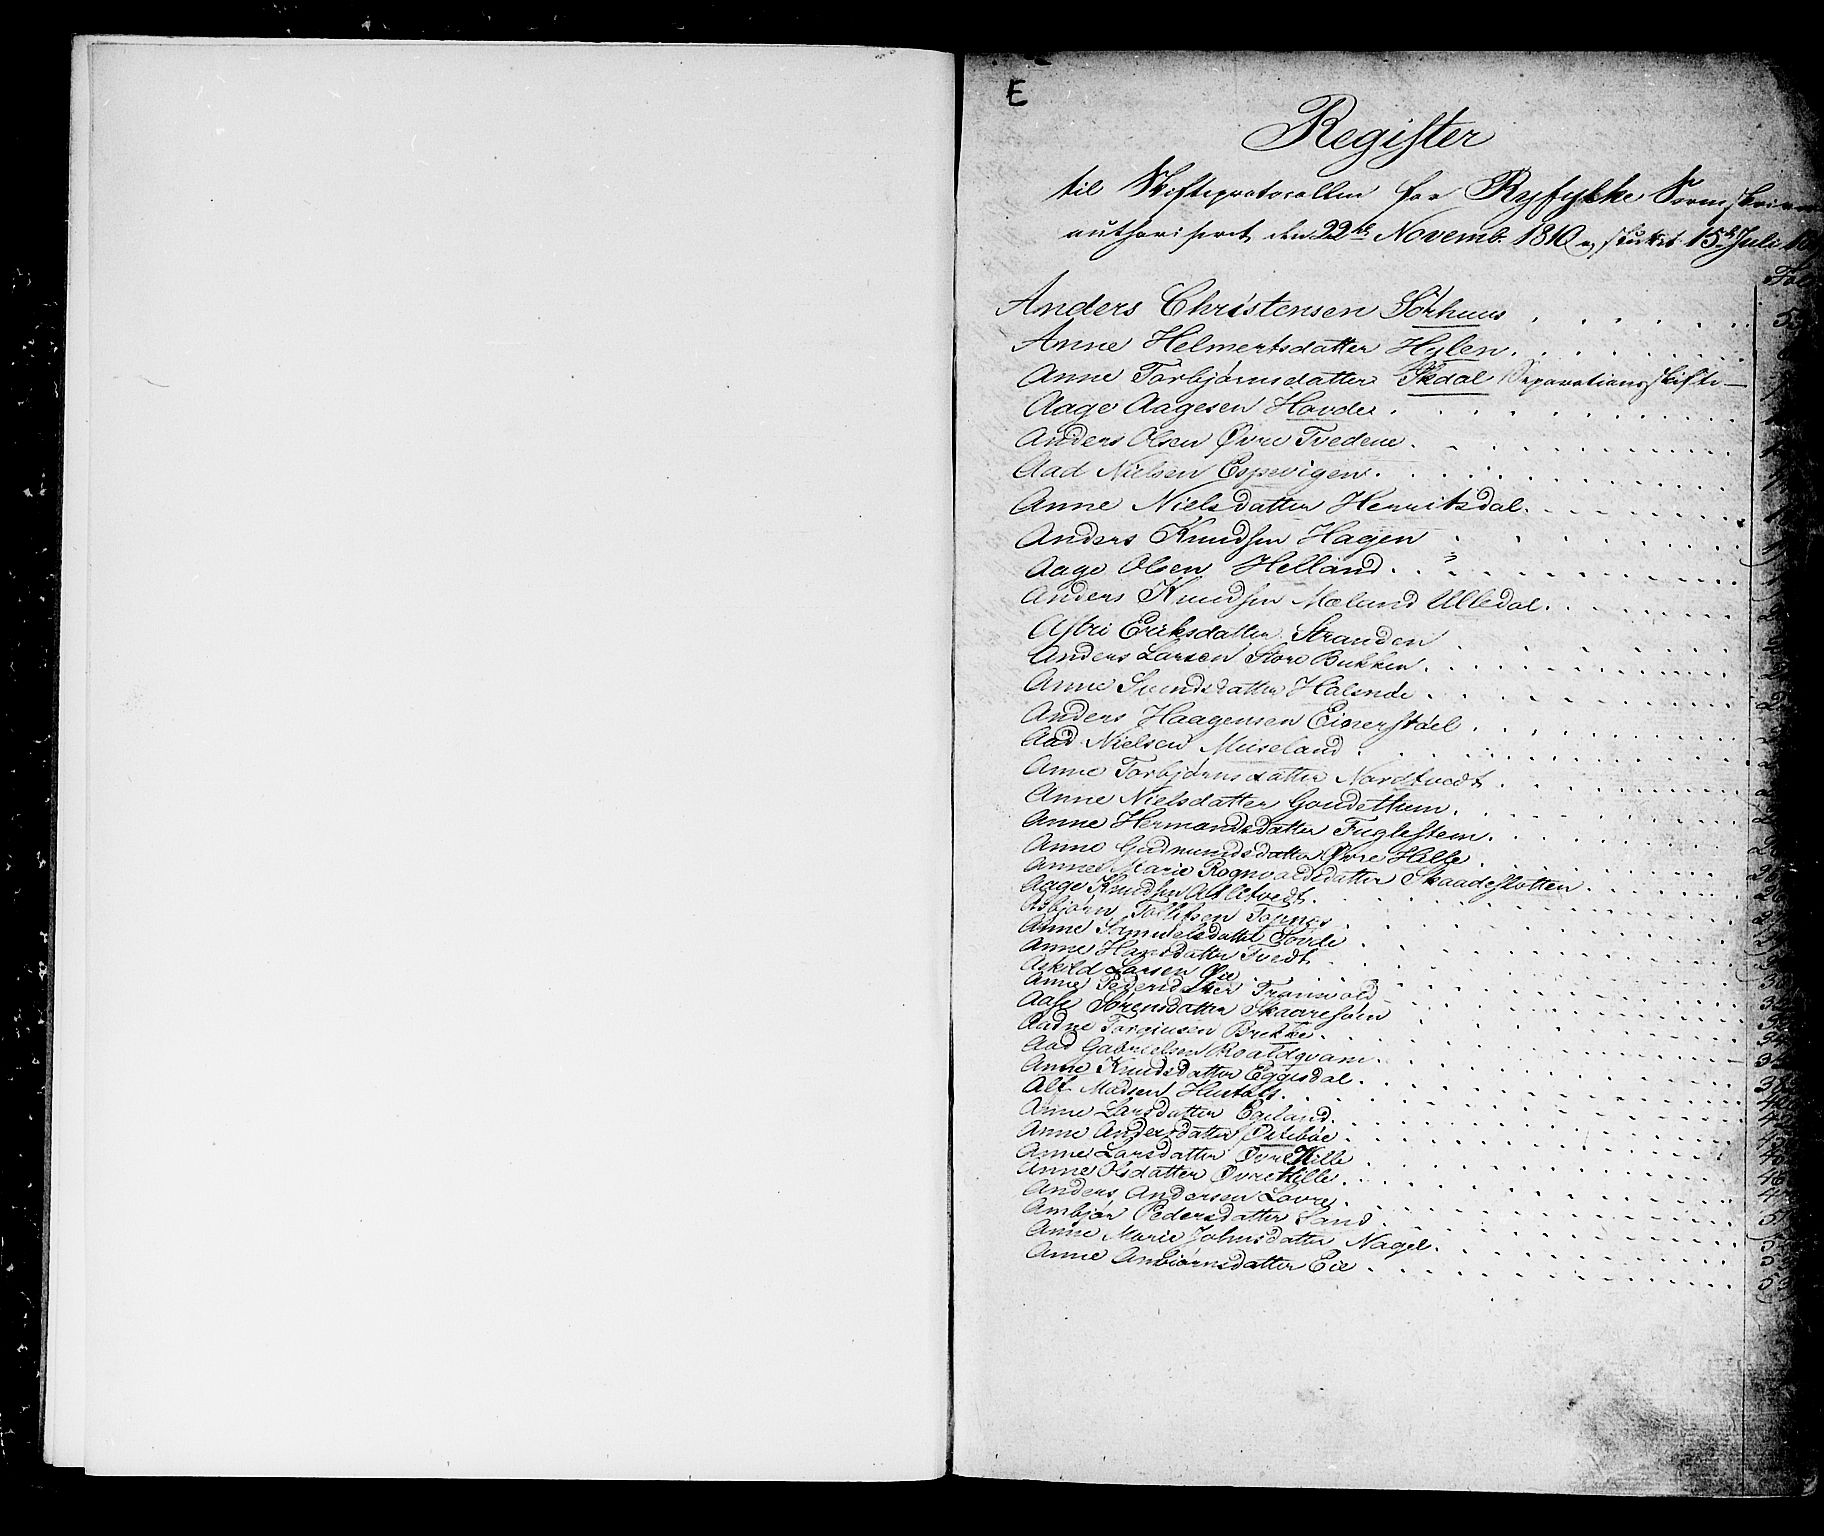 E
Register
til Skifteprotocollen for Ryfylke Sorenskriverie
authoriseret den 22de Novemb. 1810 og sluttet 15de Juli
Fol
Anders Christensen Sørhuus
Anne Helmertsdatter Hylen
Anne Torbjørnsdatter Separationsskifte
Aage Aagesen Hovde
Anders Olsen Øvre Tvedene
Aad Nielsen Espevigen
Anne Nielsdatter Henriksdal
Anders Knudsen Hagen
Aage Olsen Helland
Anders Knudsen Mæland Ulledal
Astri Eriksdatter Stranden
Anders Larsen Store Bukken
Anne Svendsdatter Halsnde
Anders Haagensen Einerstøel
Aad Nielsen Museland
Anne Torbjørnsdatter Nordtvedt
Anne Nielsdatter
Anne Hermandsdatter Fuglesteen
Anne Gudmundsdatter Øvre Hille
Anne Marie Rognvaldsdatter Skaadeslotten
Aage Knudsen
Asbjørn Tollefsen
Anne Samuelsdatter Søvde
Anne Hansdatter Tvedt
Askild Larsen Øie
Anne Pedersdatter Transvold
Aase Sørensdatter Skaaresøen
Aadne Torgiusen Brekke
Aad Gabrielsen Roaldqvam
Anne Knudsdatter Eggisdal
Alf Madsen
Anne Larsdatter Egeland
Anne Andersdatter Østebøe
Anne Larsdatter Øvre Hille
Anne Olsdatter Øvre Hille
Anders Andersen Lovre
Ambjør Pedersdatter Sand
Anne Marie Johnsdatter Nagel
Anne Anbiørnsdatter Eie